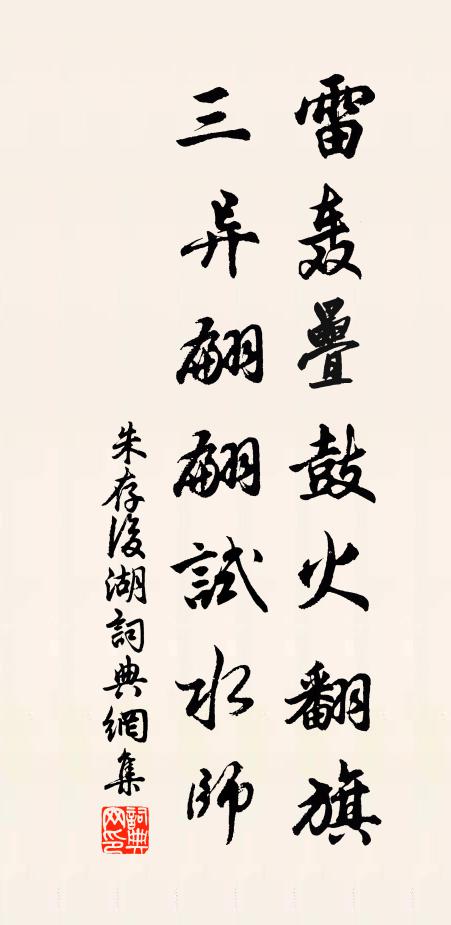 雷轰疊鼓火翻旗
三异翩翩試水師
朱存後湖詞典網集
詞典網印